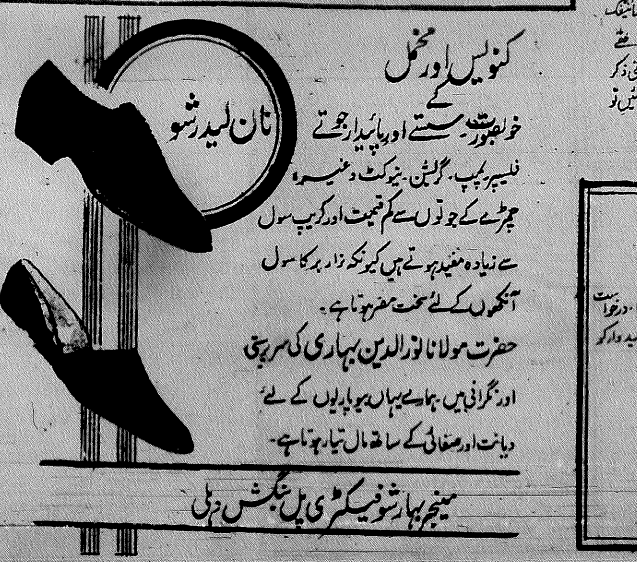 کنویس اور مخمل
کے
نان لیدر شو
خوبصورت سستے اور پائیدار جوتے
فلیپر پمپ۔ گریشن۔ نیوکٹ وغیرہ
چمڑے کے جوتوں سے کم قیمت اور کریپ سول
سے زیادہ مفید ہوتے ہیں کیونکہ ربر کا سول
آنکھوں کے لئے سخت مضر ہوتا ہے۔
حضرت مولانا نورالدین بہاری کی سرپرستی
اور نگرانی میں ہمارے یہاں بیوپاریوں کے لئے
دیانت اور صفائی کے ساتھ مال تیار ہوتا ہے۔
مینیجر بہار شو فیکٹری پل بنگش دہلی
ذکر
درخواست